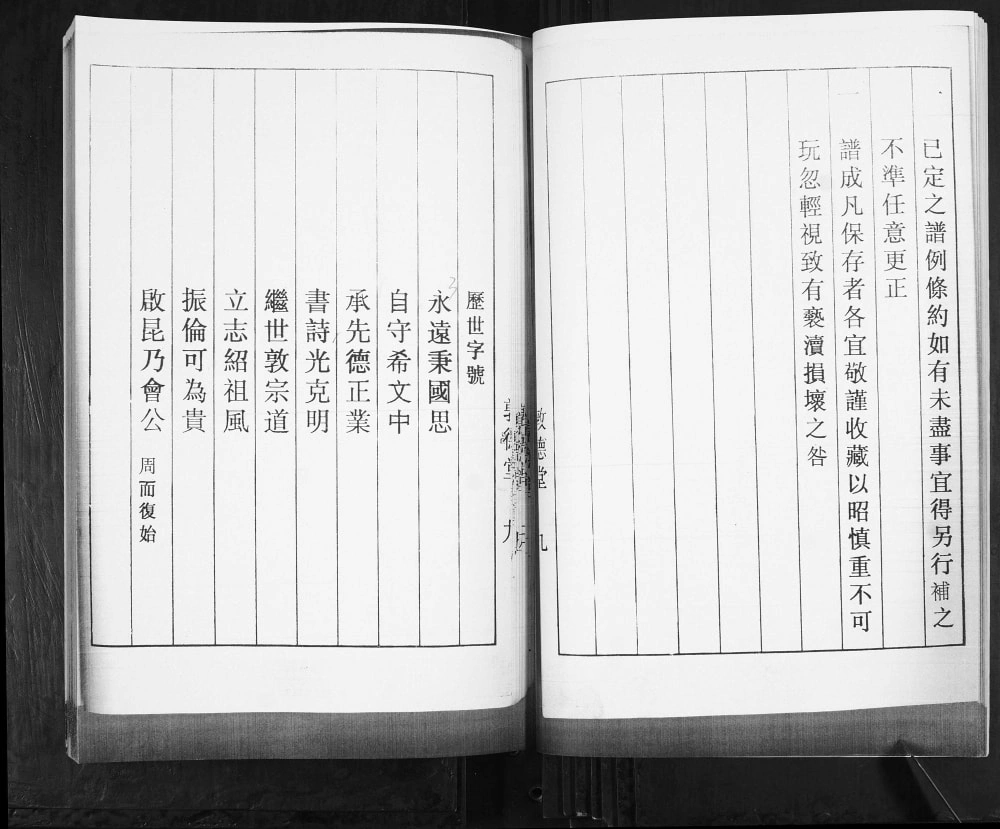 已定之譜例條約如有未盡事宜得另行補之
不準任意更正
一
譜成凡保存者各宜敬謹收藏以昭慎重不可
玩忽輕視致有褻瀆損壞之咎
敦德堂
九
歷世字號
永遠秉國思
自守希文中
承先德正業
書詩光克明
繼世敦宗道
立志紹祖風
振倫可為貴
啟昆乃會公 周而復始